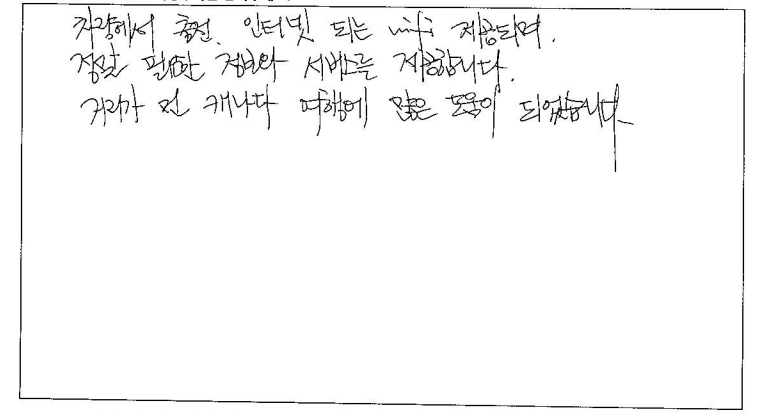 차량에서 충전, 인터넷 되는 wifi 제공되며.
정말 필요한 정보와 서비스를 제공합니다.
거리가 먼 캐나다 여행에 많은 도움이 되었습니다.